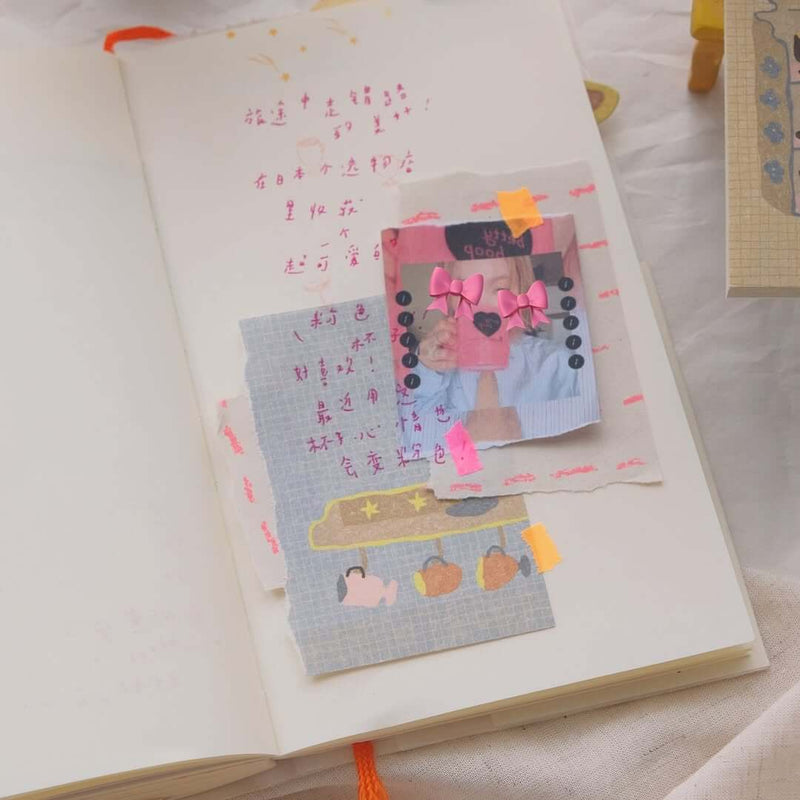 旅途中走错路
的美
在日本个选物店
里收获
一个
超可爱的
粉色
杯子
好喜欢！
最近用这
杯子心情也
会变粉色！
betty
boop